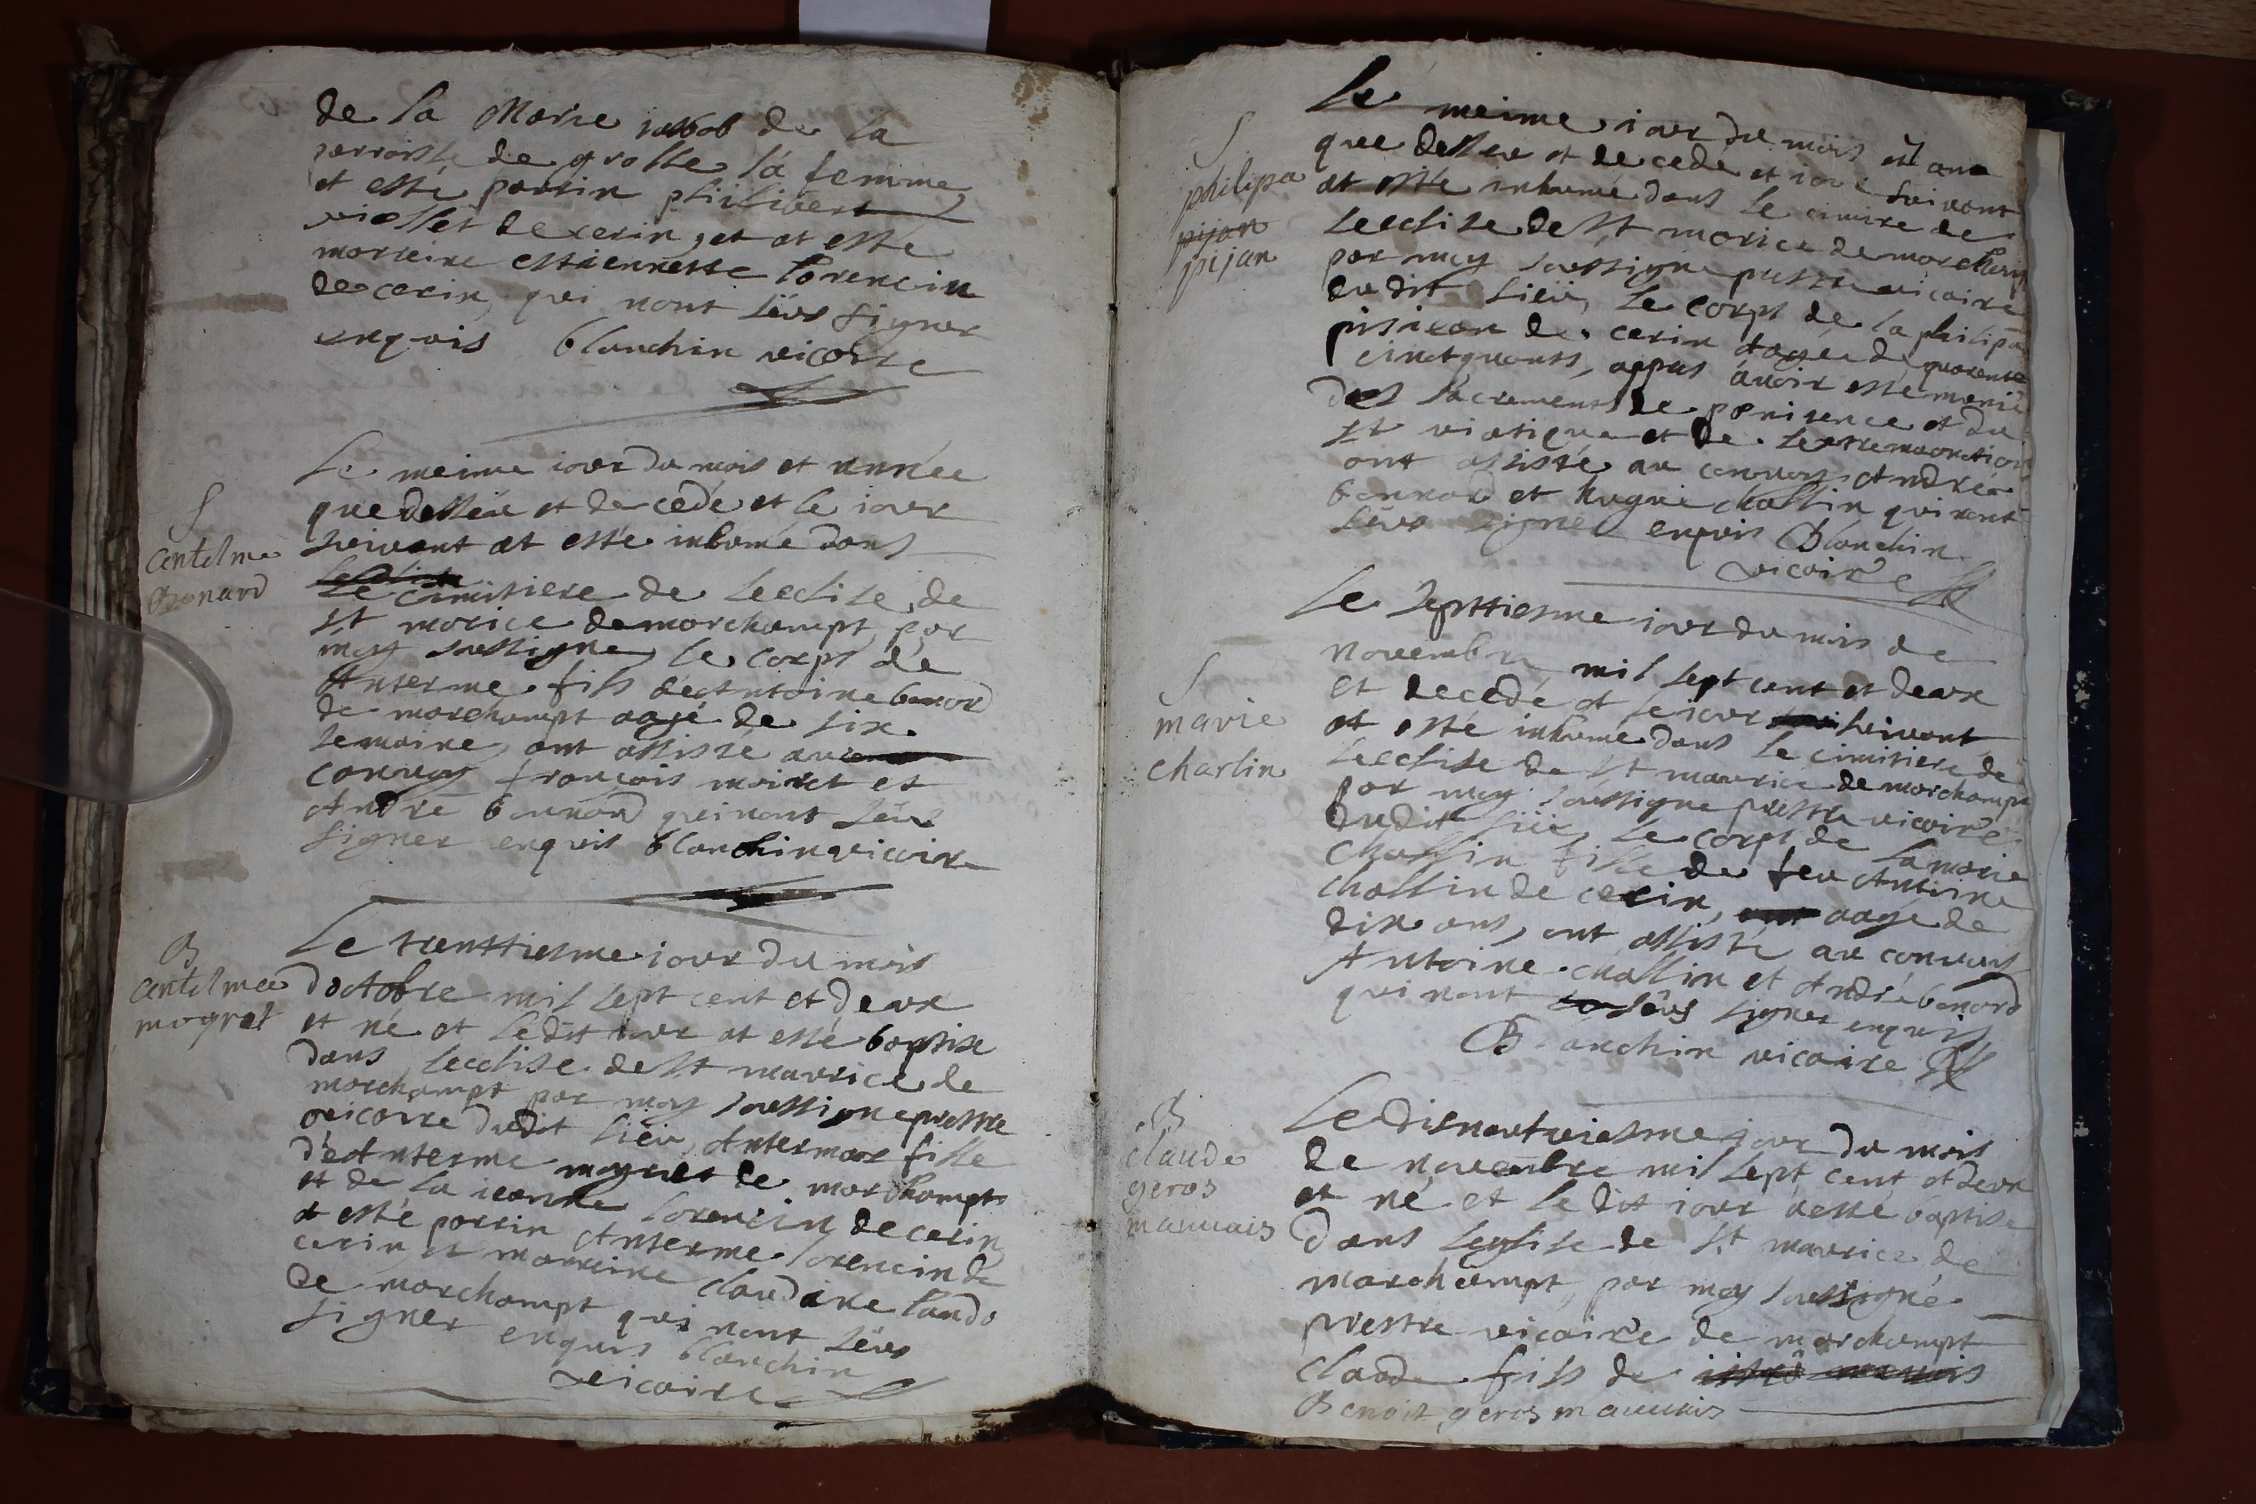 de la Marie de la
parroisse de grolle sa femme
et esté parrin philibert
viollet de cerin, et at esté
marreine estiennette lorencin
de cerin, qui nont sçeus signer
enquis blanchin vicaire
Le meime iour du mois et année
que desseu et decedé et le iour
S
suivant at esté inhumé dans
Centelme
Bonard
le cimitiere de leclise de
St morice de marchampt, par
moy soussigne, le corps de
Anterme fils de Antoine bonard
de marchampt aagé de six
semaine, ont assisté au
convoy françois moiret et
André bonnard qui nont sceus
signer enquis blanchin vicaire
B
Centelmee
mogret
Le trenttiesme iour du mois
doctobre mil sept cent et deux
et né et ledit iour at esté baptise
dans leclise de St maurice de
marchampt par moy soussigne prestre
vicaire dudit lieu, fille
de Anterme de marchampt
et de la ieanne lorencin de cerin
a esté parrin Anterme lorencin de
cerin et marreine claudine
de marchampt qui nont sceus
signer enquis blanchin
vicaire
Le meime iour du mois et an
que desseu et decedé et iour suivant
S
philipa
pijan
pijan
at esté inhumé dans le cimitre de
leclise de St morice de marchamp
par moy soussigne prestre vicaire
dudit lieu, le corps de la philipa
de cerin aagée de quarente
cinct ans, appres avoir esté munie
des sacrements de penitence et du
St viatique et de lextremaonction
ont assisté au convoy André
bonnard et hugue challin qui nont
sceus signer enquis Blanchin
vicaire
Le septtiesme iour du mois de
novembre mil sept cent et deux
S
marie
charlin
et decedé et le iour suivant
at esté inhume dans le cimitiere de
leclise de St maurice de marchampt
par moy soussigne prestre vicaire
dudit lieu, le corps de la marie
challin fille de feu Antoine
challin de cerin, aagé de
dix ans, ont assisté au convoy
Antoine challin et André bonard
qui nont sceus signer enquis
Blanchin vicaire
B
claude
geros
mauvais
Le disneufviesme iour du mois
de novembre mil sept cent et deux
et né et le dit iour a esté baptise
dans leglise de St maurice de
marchampt, par moy soussigné
prestre vicaire de marchampt
claude fils de
Benoit geros mauvais